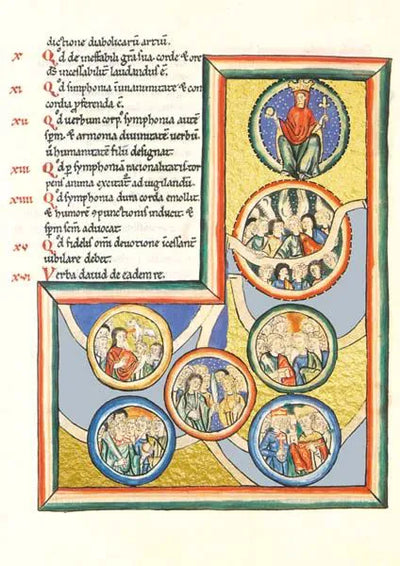 dictione diabolicarū artiū.
x Qd de ineffabili gr̄a sua corde & ore
ds̄ incessabilit̄ laudandus ē.
xi Qd simphonia ī unanimitate & con
cordia ꝓferenda ē.
xii Qd verbum corp̄. symphonia autē
spm̄. & armonia diuinitatē verbū
ū humanitatē filii designat.
xiii Qd ꝑ symphoniā racionalitatis tor
pens anima excitat̄ ad uigilandū.
xiiii Qd symphonia dura corda emollit.
& humorē ꝯpunctionis inducit. &
spm̄ scm̄ aduocat.
xv Qd fidelis om̄i deuotione īcessant̄
iubilare debet.
xvi Verba dauid de eadem re.